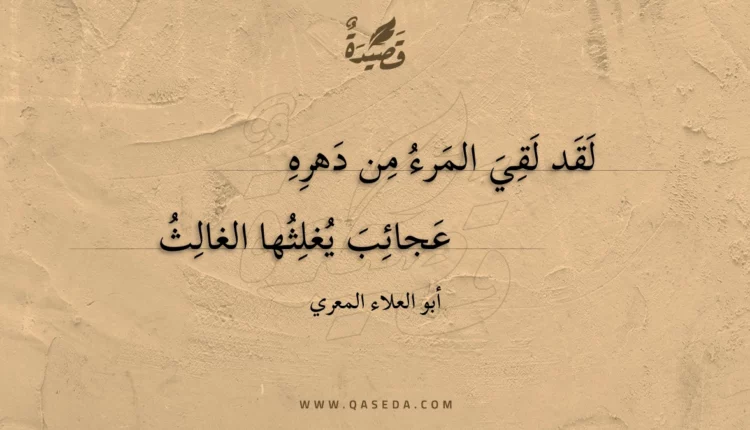 قَصِيْدَةٌ
لَقَد لَقِيَ المَرءُ مِن دَهرِهِ
عَجائِبَ يُغلِثُها الغالِثُ
أبو العلاء المعري
WWW.QASEDA.COM